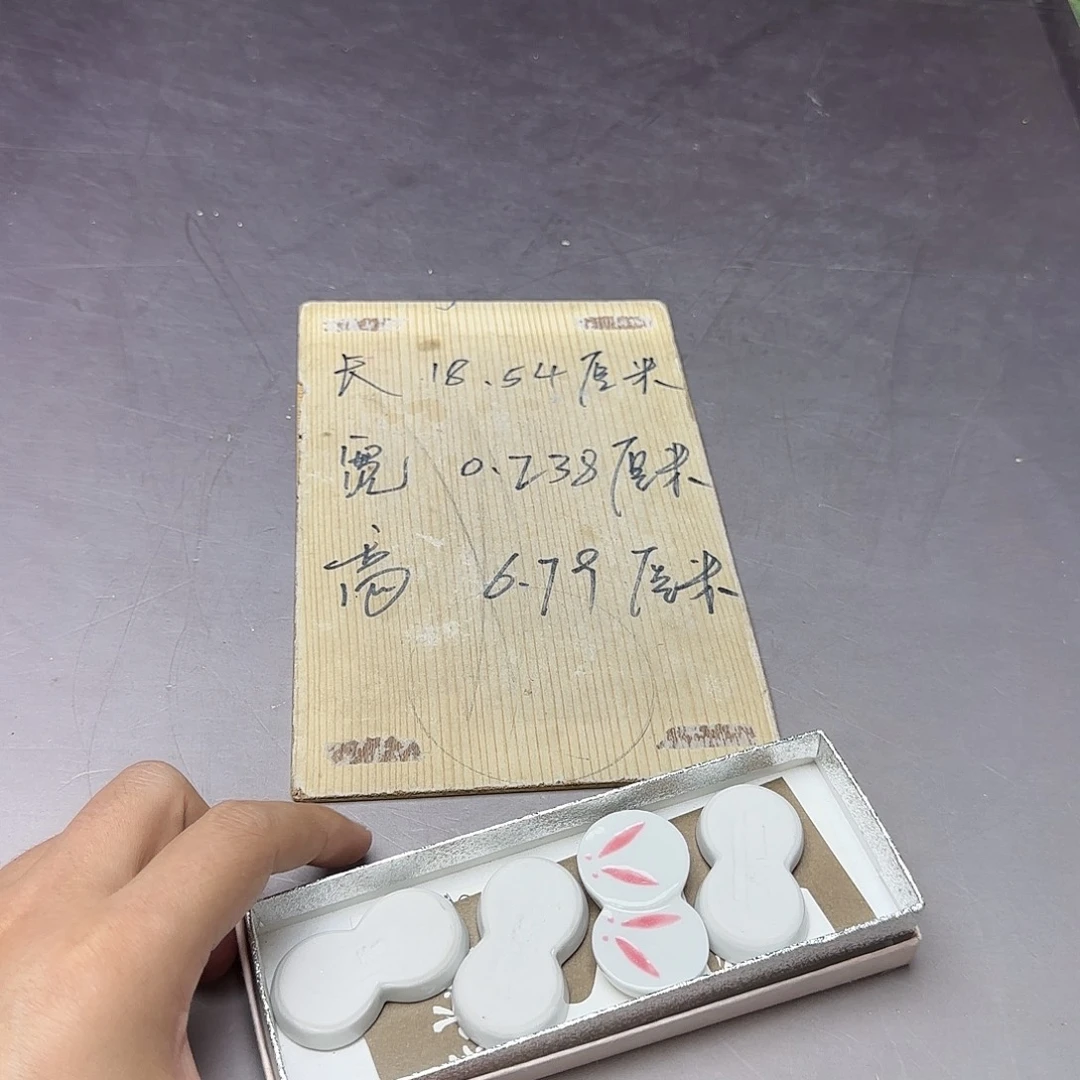 长 18.54厘米
宽 0.738厘米
高 6.79厘米